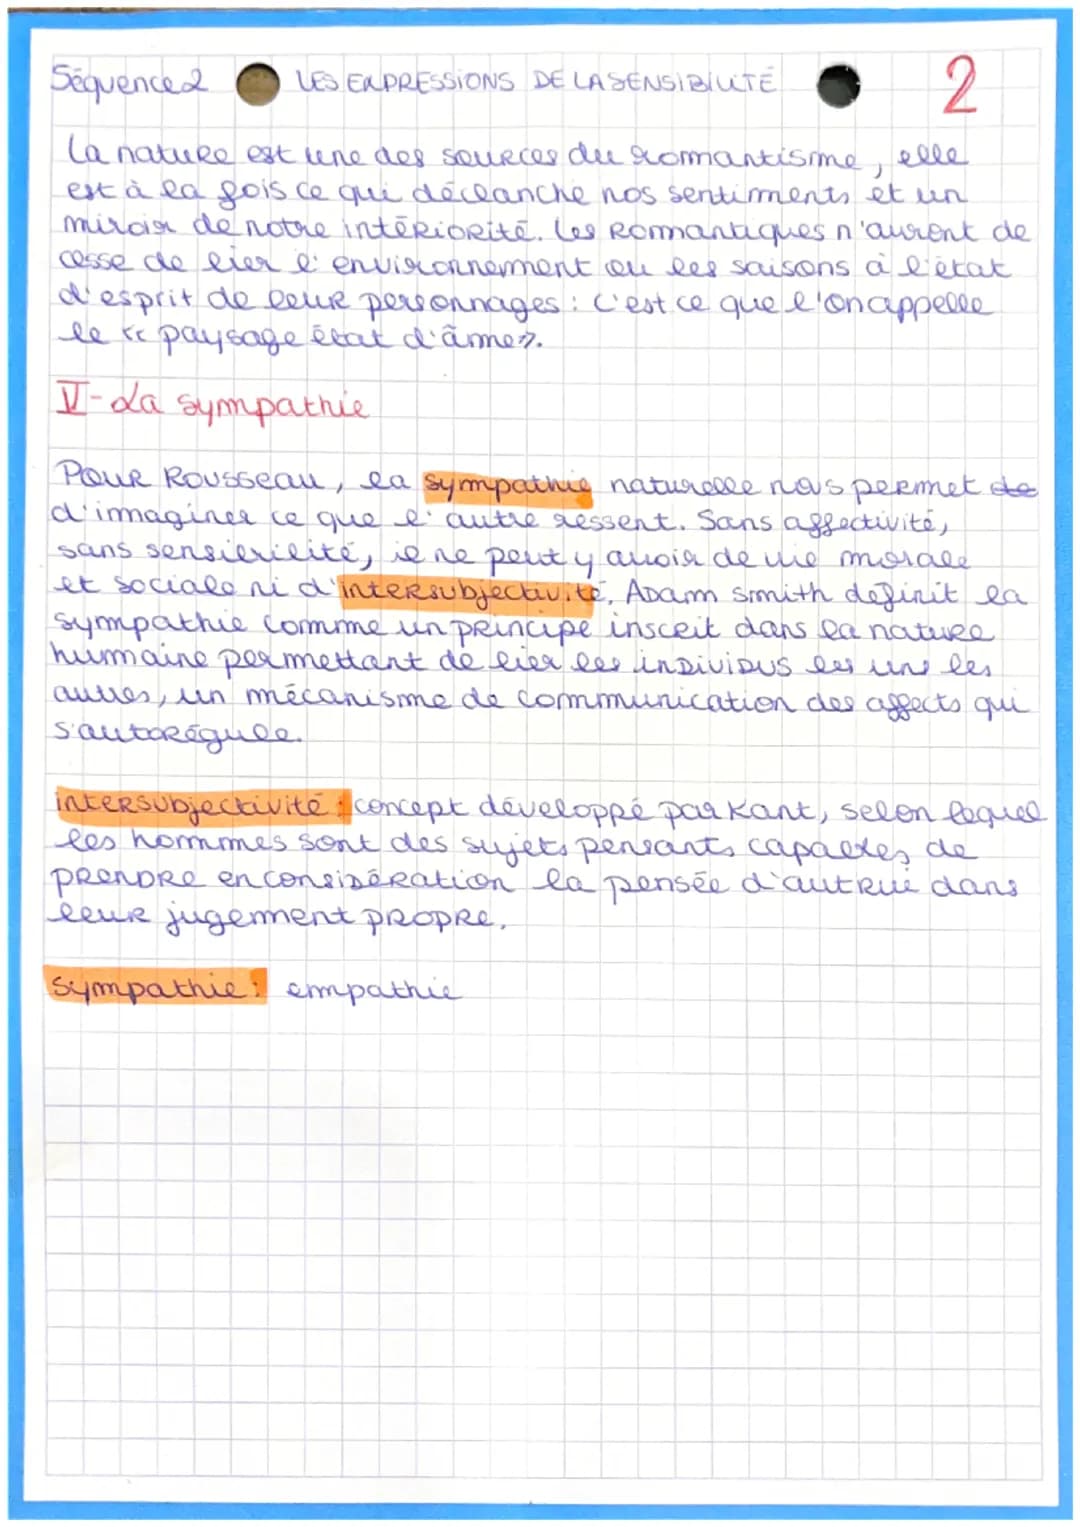 Séquence 2 LES EXPRESSIONS DE LA SENSIBILITÉ 2
La nature est une des sources du romantisme, elle
est à la fois ce qui déclanche nos sentiments et un
miroir de notre intériorité. Les Romantiques n'auront de
cesse de lier l'environnement ou les saisons à l'état
d'esprit de leur personnages : c'est ce que l'on appelle
le « paysage état d'âme».
V-La sympathie
Pour Rousseau, la sympathie naturelle nous permet de
d'immaginer ce que l'autre ressent. Sans affectivité,
sans sensibilité, il ne peut y avoir de vie morale
et sociale ni d'intersubjectivité. Adam Smith définit la
sympathie comme un principe inscrit dans la nature
humaine permettant de lier les individus les uns les
autres, un mécanisme de communication des affects qui
s'autorégule.
intersubjectivité : concept développé par Kant, selon lequel
les hommes sont des sujets pensants capables de
prendre en considération la pensée d'autrui dans
leur jugement propre.
sympathie : empathie